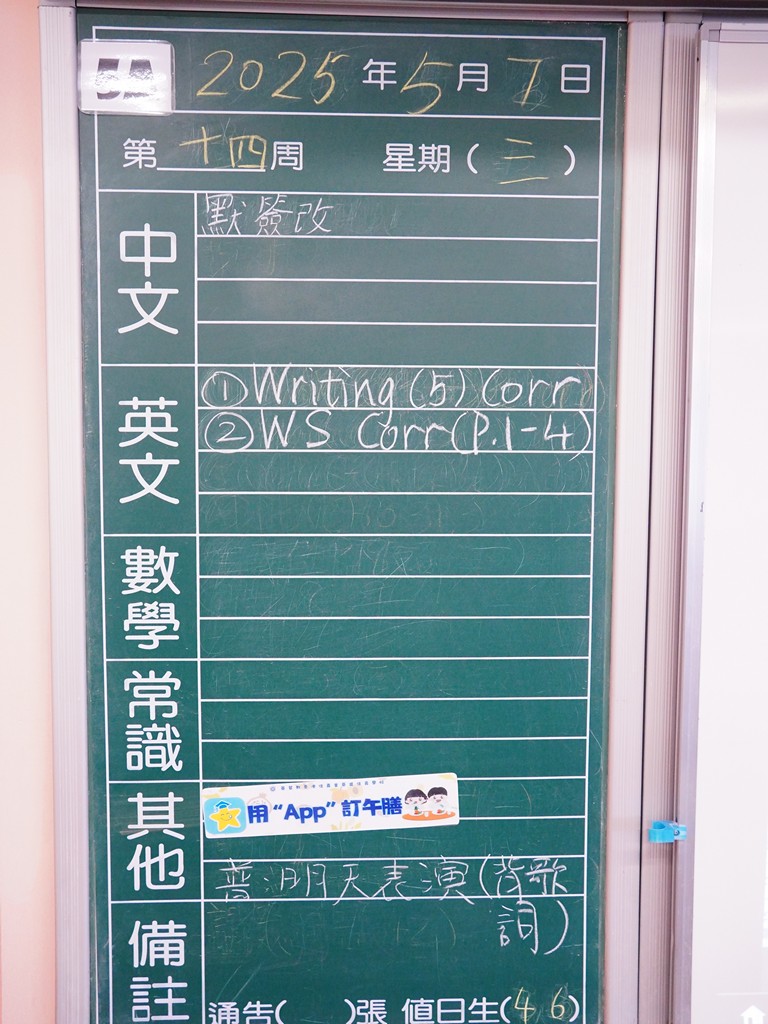 5A
2025年5月7日
第十四周 星期(三)
中文
默簽改
英文
①Writing(5) Corr
②WS Corr(P.1-4)
數學
常識
其他
用“App”訂午膳
普:明天表演(背歌
詞)
備註
通告( )張 值日生(4 6)